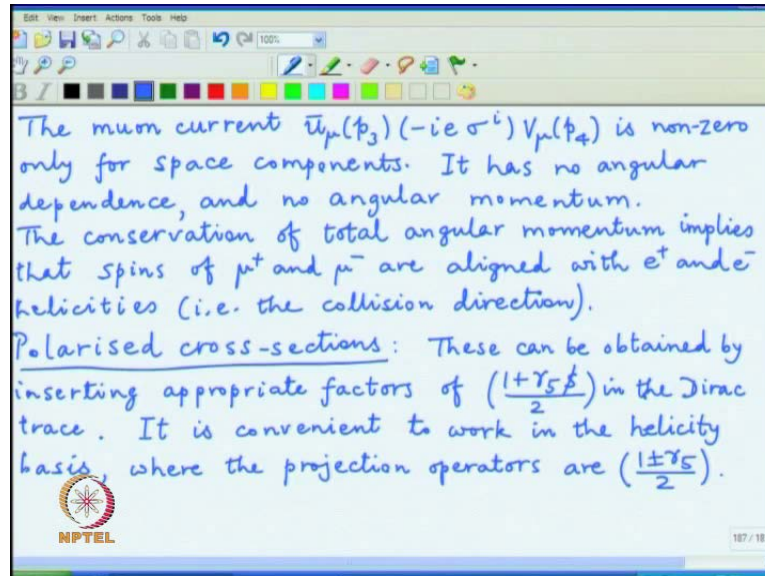 Edit View Insert Actions Tools Help
100%
B I
The muon current ū_μ(p₃) (-ie σⁱ) V_μ(p₄) is non-zero
only for space components. It has no angular
dependence, and no angular momentum.
The conservation of total angular momentum implies
that spins of μ⁺ and μ⁻ are aligned with e⁺ and e⁻
helicities (i.e. the collision direction).
Polarised cross-sections: These can be obtained by
inserting appropriate factors of ((1+γ₅s̸)/2) in the Dirac
trace. It is convenient to work in the helicity
basis, where the projection operators are ((1±γ₅)/2).
NPTEL
187 / 18